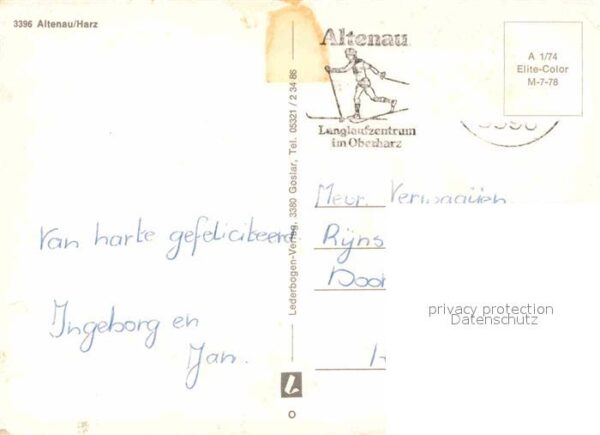 3396 Altenau/Harz
Van harte gefeliciteerd.
Ingeborg en
Jan.
Lederbogen-Verlag, 3380 Goslar, Tel. 05321 / 2 34 86
L
Altenau
Langlaufzentrum
im Oberharz
A 1/74
Elite-Color
M-7-78
3396
Mevr. Verwaaijen
Rijns
Doo
privacy protection
Datenschutz